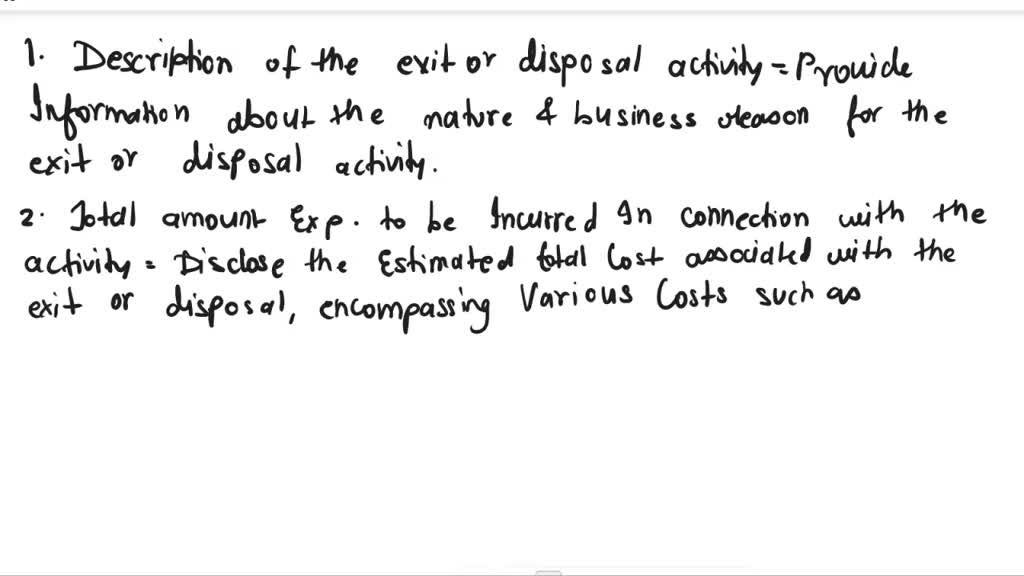 1. Description of the exit or disposal activity = Provide
Information about the nature & business reason for the
exit or disposal activity.
2. Total amount Exp. to be Incurred In connection with the
activity = Disclose the Estimated total Cost associated with the
exit or disposal, encompassing Various Costs such as